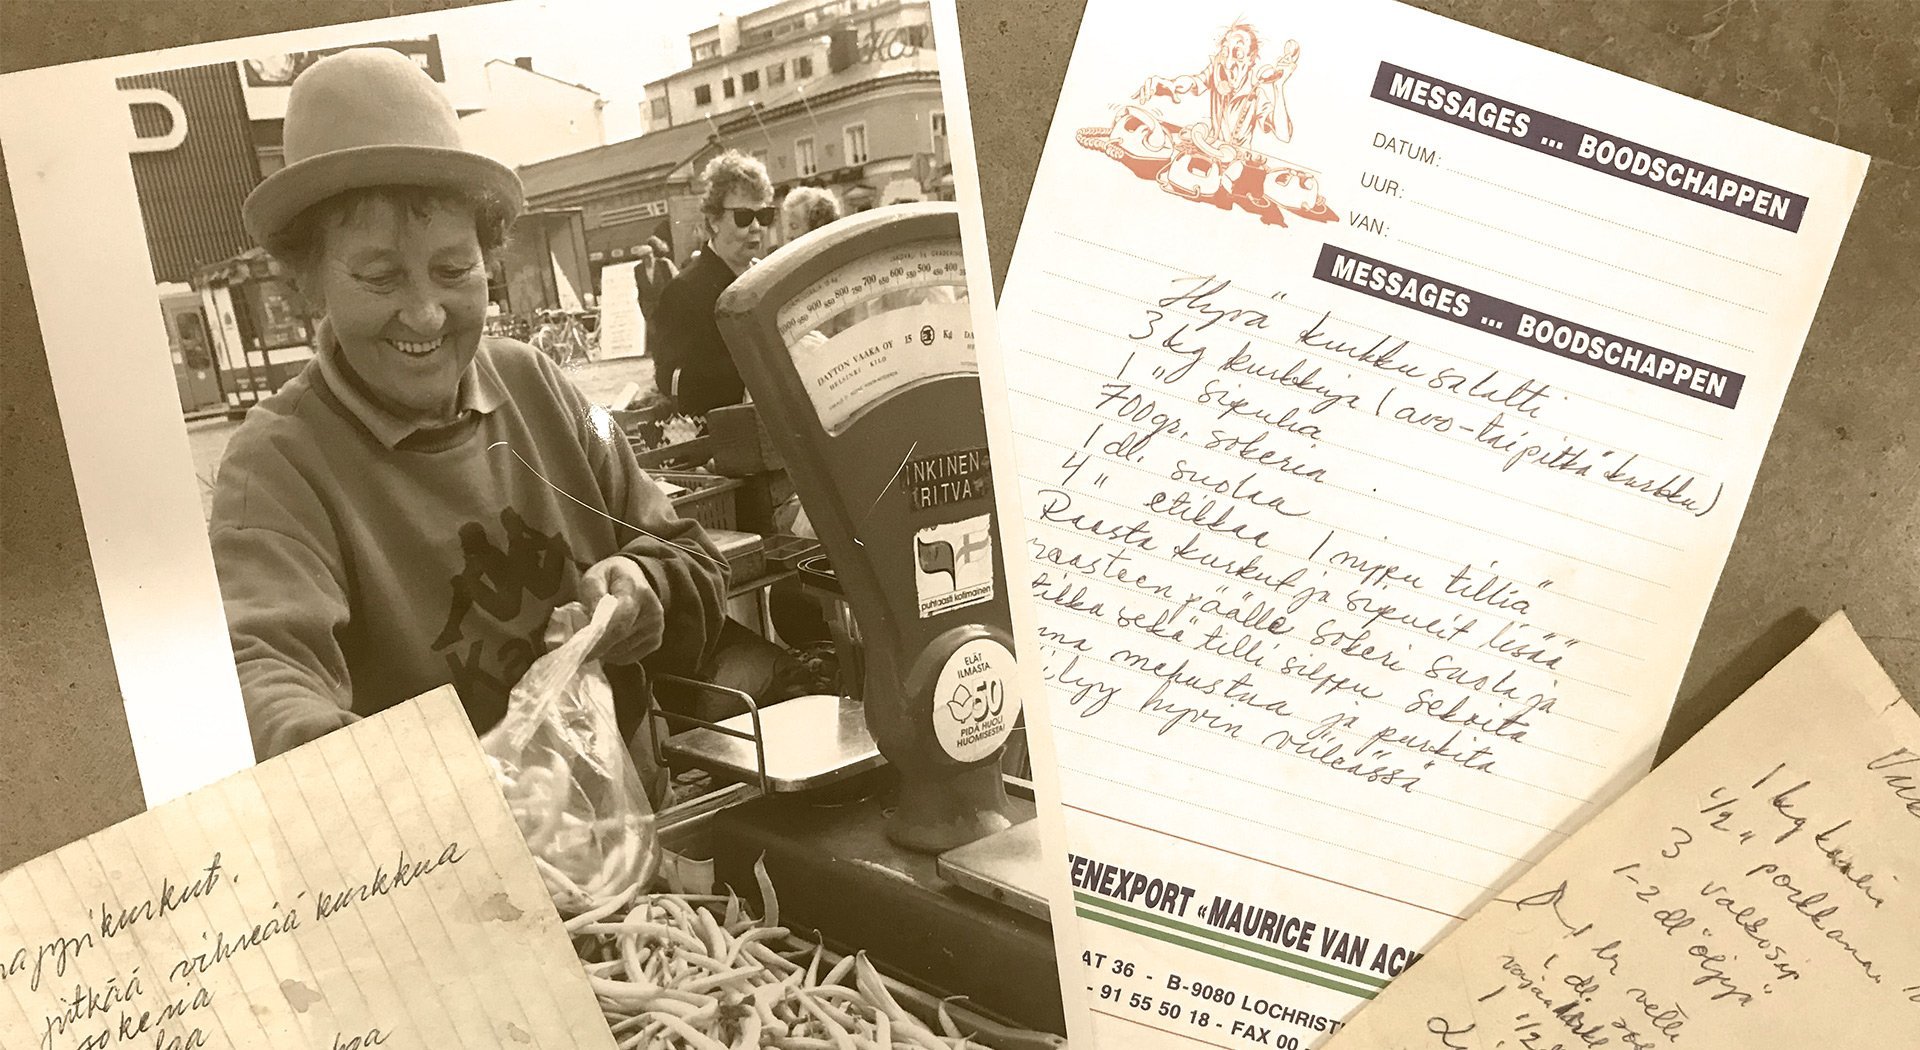 P
1000 950 900 850 800 750 700 650 600 550 500 450 400
DAYTON VAAKA OY 15 Kg
HELSINKI KILO
INKINEN
RITVA
puhtaasti kotimainen
ELÄT
ILMASTA
50
PIDÄ HUOLI
HUOMISESTA!
MESSAGES ... BOODSCHAPPEN
DATUM:
UUR:
VAN:
MESSAGES ... BOODSCHAPPEN
Hyvä kurkku salatti
3 kg kurkkuja (avo-tai pitkä kurkku)
1 " sipulia
700gr. sokeria
1 dl. suolaa
4 " etikkaa 1 nippu tilliä
Raasta kurkut ja sipulit lisää
raasteen päälle sokeri suola ja
tikka sekä tilli silppu sekoita
na mehustua ja purkita
ilyy hyvin viileässä
TENEXPORT "MAURICE VAN ACK
AT 36 - B-9080 LOCHRISTI
- 91 55 50 18 - FAX 00
napyrikurkut.
pitkää vihreää kurkkua
sokeria
laa
1 kg kaali
1/2 " porkkanaa
3 valkosip
1-2 dl öljyä
1 ltr vettä
1 dl.
1 1/2